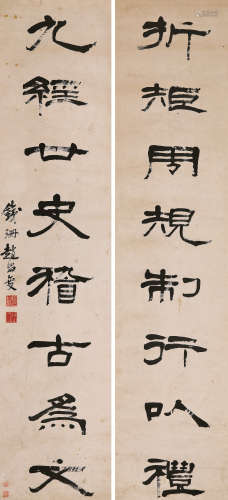 折矩周規制行以禮
九經廿史稽古爲文
鐵珊趙